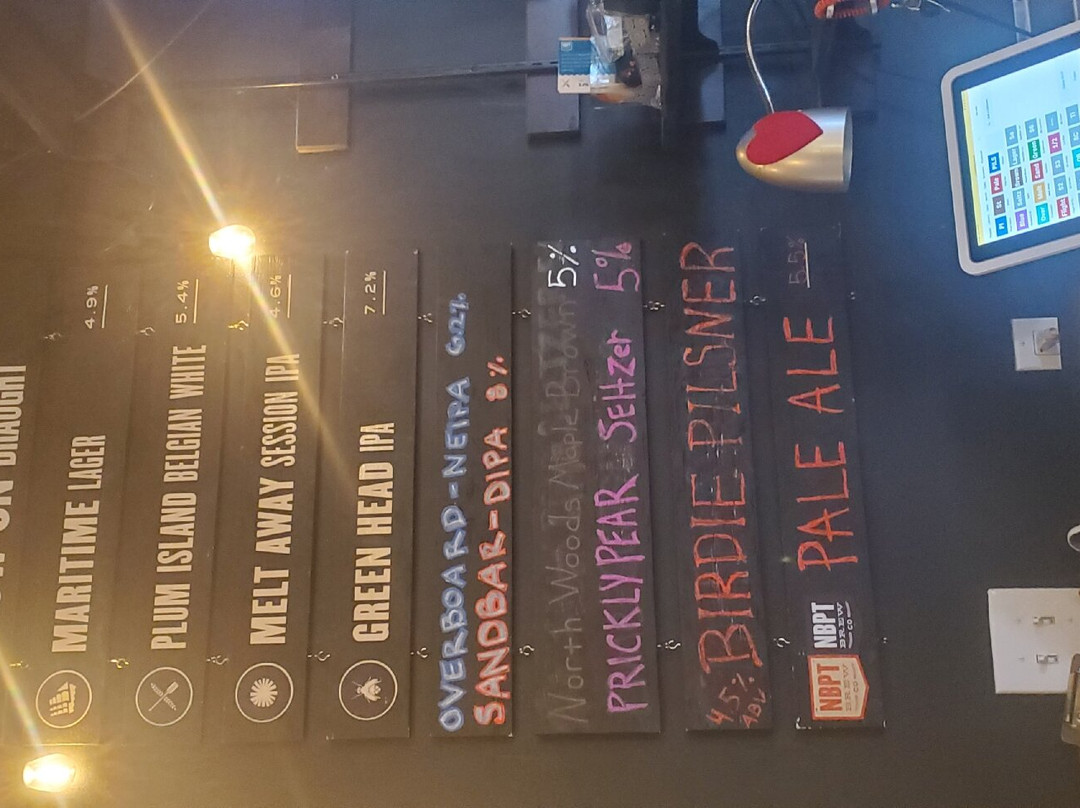 ON DRAUGHT
MARITIME LAGER 4.9%
PLUM ISLAND BELGIAN WHITE 5.4%
MELT AWAY SESSION IPA 4.6%
GREEN HEAD IPA 7.2%
OVERBOARD-NEIPA 6.2%
SANDBAR-DIPA 8%
North Woods Maple Brown 5%
PRICKLY PEAR Seltzer 5%
4.5% ABV BIRDIE PILSNER
NBPT BREW CO NBPT BREW CO PALE ALE 5.5%